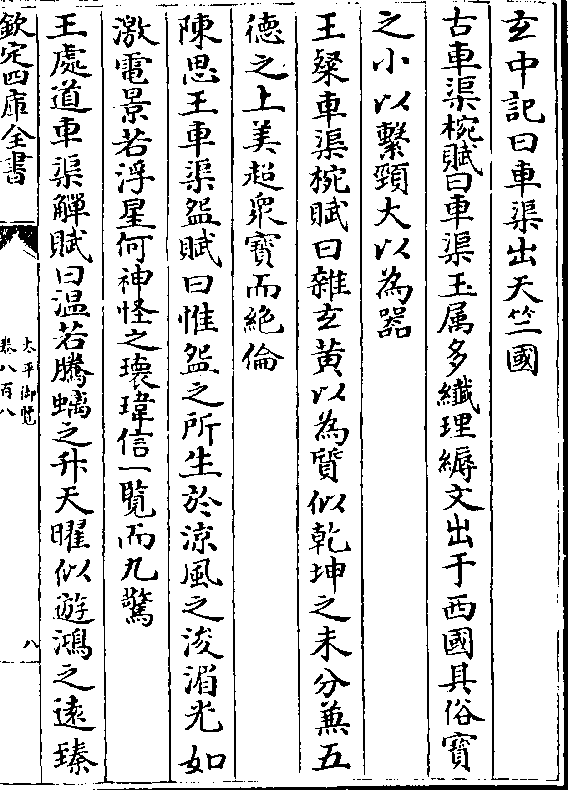 玄中記曰車渠出天竺國
古車渠椀賦曰車渠玉属多纖理縟文出于西國其俗寶
之小以繫頸大以為器
王粲車渠椀賦曰雜玄黄以為質似乾坤之未分兼五
德之上美超衆寳而絶倫
陳思王車渠盌賦曰惟盌之所生於涼風之浚湄光如
激電景若浮星何神怪之瓌瑋信一覧而九驚
王處道車渠觶賦曰温若騰螭之升天曜似遊鴻之逺臻
欽定四庫全書
太平御覽
卷八百八
八